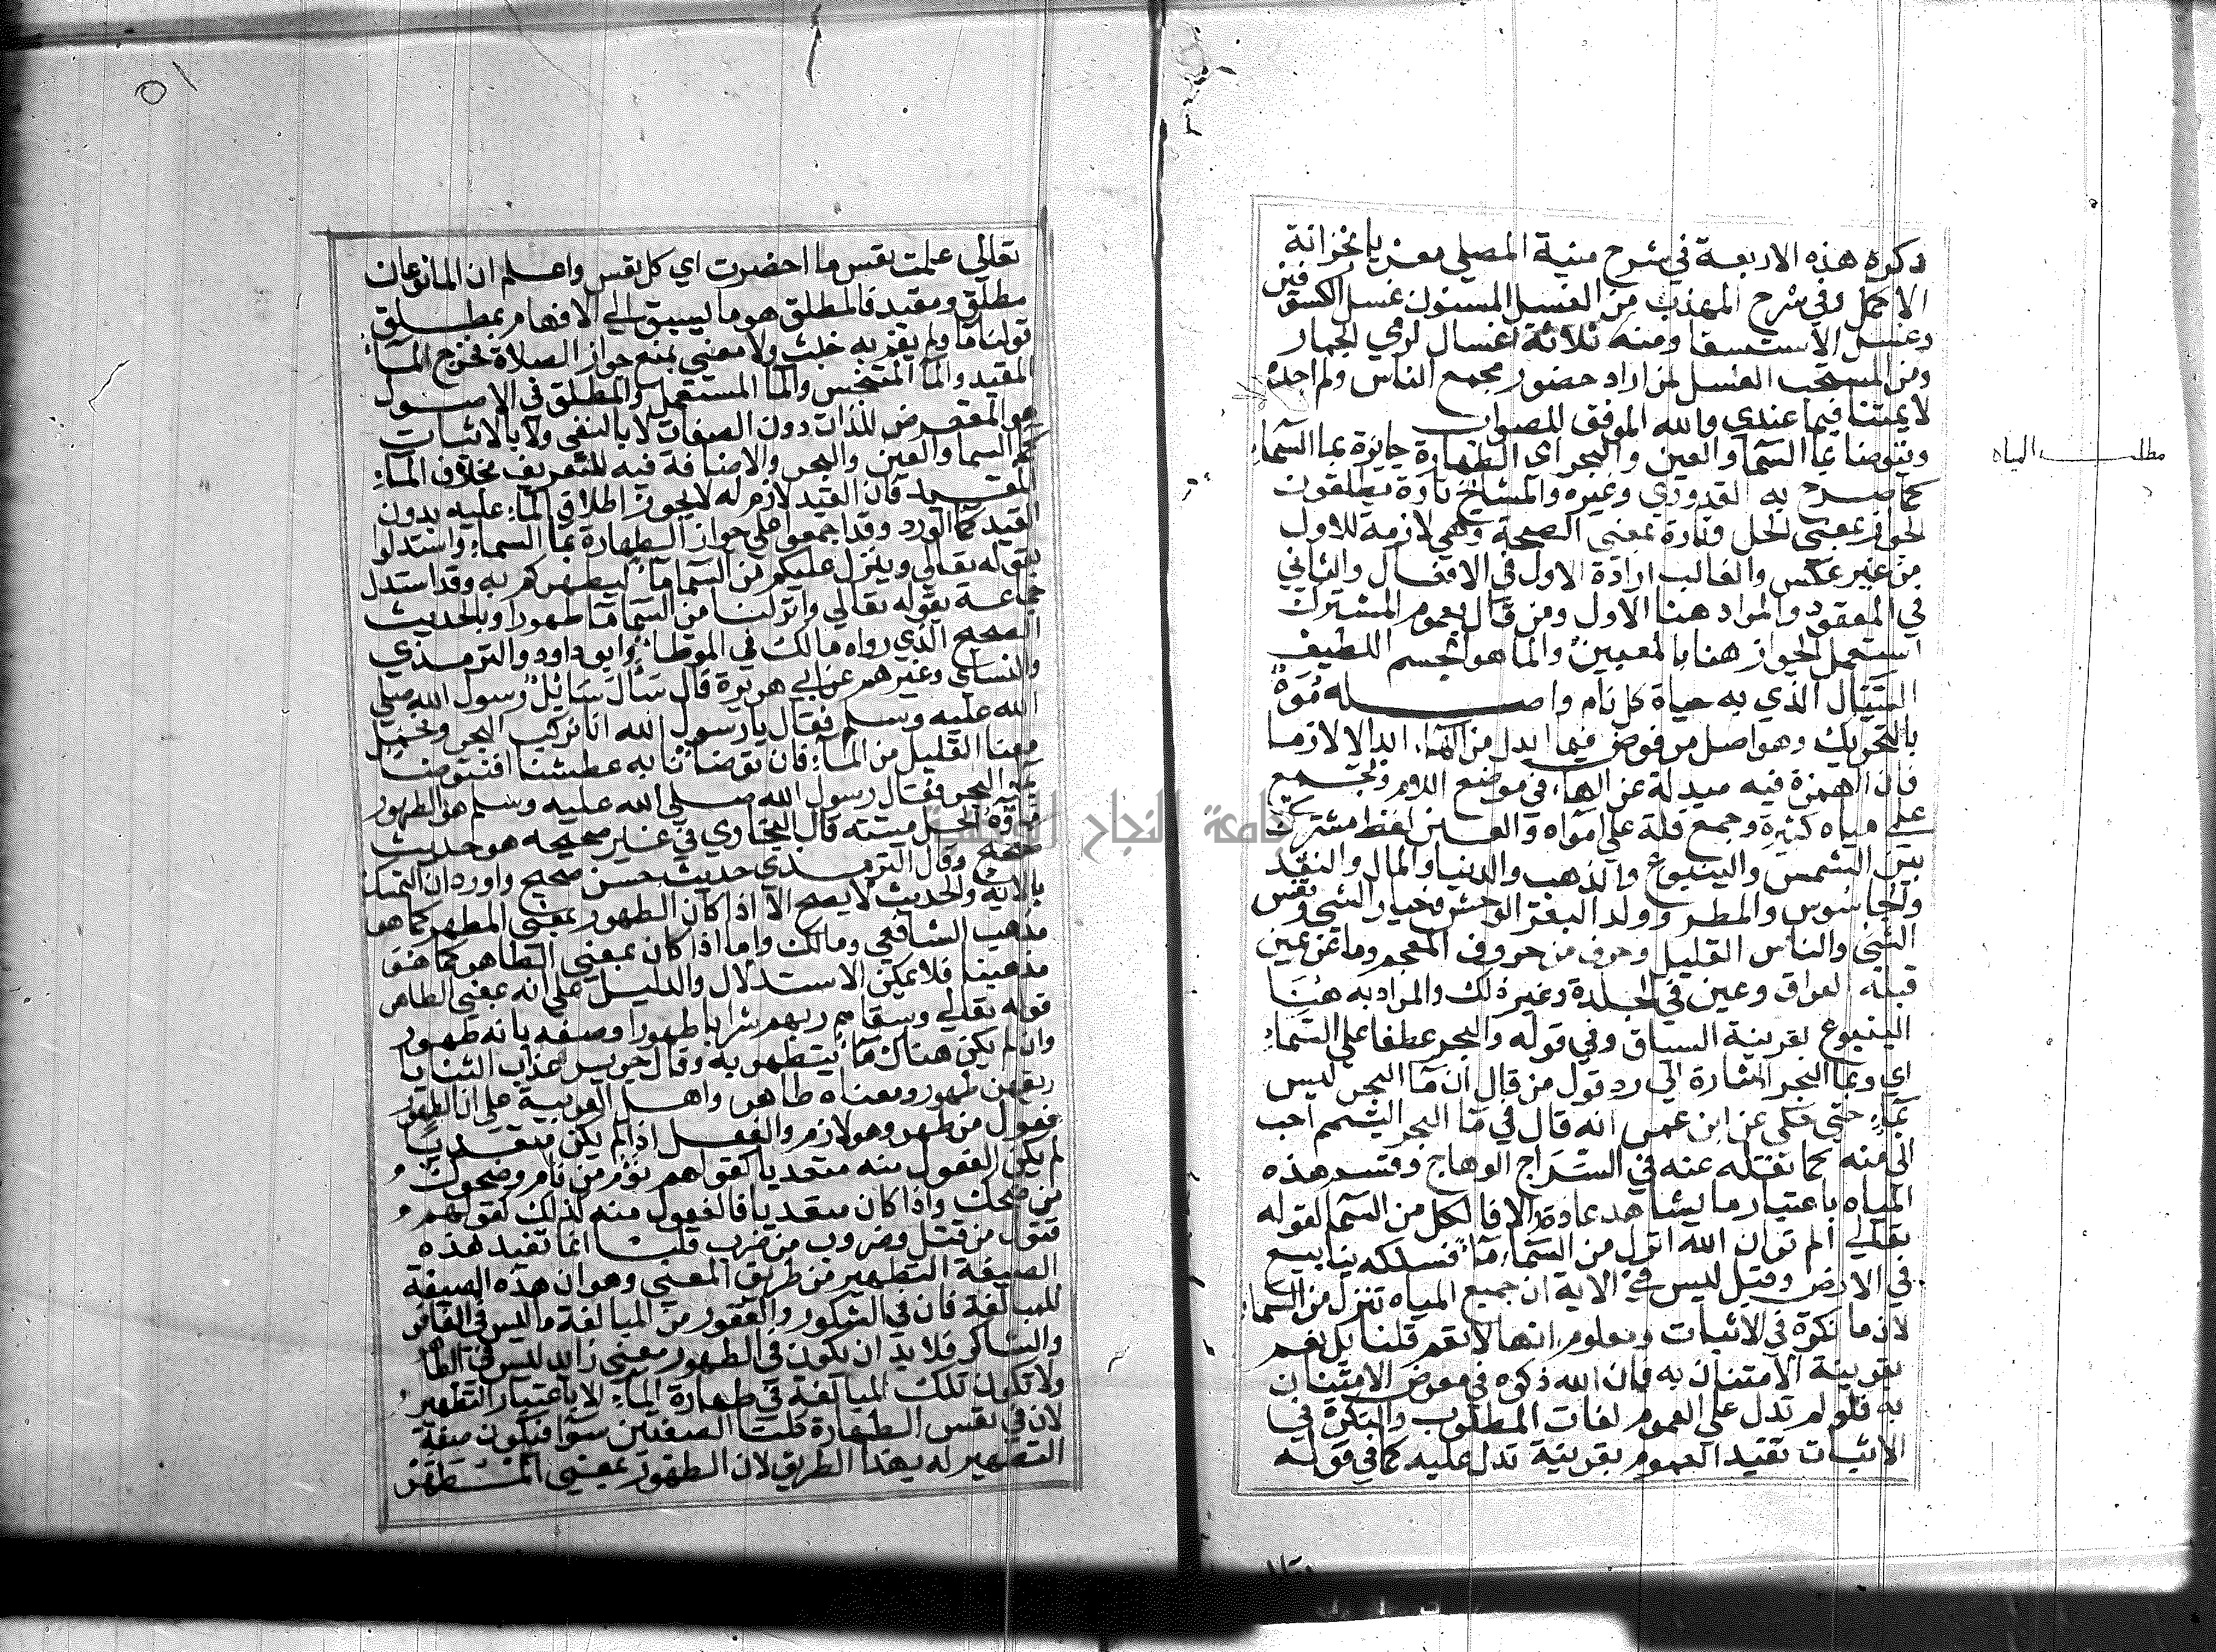 ذكره هذه الاربعة في شرح منية المصلي معزيا لخزانة
الاكمل وفي شرح المهذب من الغسل المسنون غسل الكسوفين
وغسل الاستسقا ومنه ثلاثة اغسال لرمي الجمار
ومن المستحب الغسل لمن اراد حضور مجمع الناس ولم اجده
لايمتنا فيما عندي والله الموفق للصواب
ويتوضا بما السما والعين والبحر اي الطهارة جايزة بما السماء
مطلب المياه
كما صرح به القدوري وغيره والمشايخ تارة يطلقون
الجواز بمعني الحل وتارة بمعني الصحة وهي لازمة للاول
من غير عكس والغالب ارادة الاول في الافعال والثاني
في العقود والمراد هنا الاول ومن قال بعموم المشترك
استعمل الجواز هنا بالمعنيين والما هو الجسم اللطيف
السيال الذي به حياة كل نام واصله موه
بالتحريك وهو اصل مرفوض فيما ابدل من الهاء ابدالا لازما
فان الهمزة فيه مبدلة عن الهاء في موضع اللام ويجمع
علي مياه كثرة وجمع قلة علي امواه والعين لفظ مشترك
بين الشمس والينبوع والذهب والدنيا والمال والنقد
والجاسوس والمطر وولد البقر الوحش وخيار الشي ونفس
الشي والناس القليل وحرف من حروف المعجم وما عن يمين
قبلة العراق وعين في الجلدة وغير ذلك والمراد به هنا
الينبوع بقرينة السياق وفي قوله والبحر عطفا علي السماء
اي وبما البحر اشارة الي رد قول من قال ان ما البحر ليس
بماء حتي حكي عن ابن عمر انه قال في ما البحر التيمم احب
الي منه كما نقله عنه في السراج الوهاج وقسم هذه
المياه باعتبار ما يشاهد عادة والا فالكل من السما لقوله
تعالي الم تر ان الله انزل من السماء ماء فسلكه ينابيع
في الارض وقيل ليس في الاية ان جميع المياه تنزل من السماء
لان ما نكرة في الاثبات ومعلوم انها لا تعم قلنا بل تعم
بقرينة الامتنان به فان الله ذكره في معرض الامتنان
به فلو لم تدل علي العموم لفات المطلوب والنكرة في
الاثبات تفيد العموم بقرينة تدل عليه كما في قوله
تعالي علمت نفس ما احضرت اي كل نفس واعلم ان الما نوعان
مطلق ومقيد فالمطلق هو ما يسبق الي الافهام بمطلق
قولنا ما ولم يقم به خبث ولا معني يمنع جواز الصلاة فخرج الماء
المقيد والما المتنجس والما المستعمل والمطلق في الاصول
هو المتعرض للذات دون الصفات لا بالنفي ولا بالاثبات
كما السما والعين والبحر والاضافة فيه للتعريف بخلاف الماء
المقيد فان القيد لازم له لا يجوز اطلاق الماء عليه بدون
القيد كما الورد وقد اجمعوا علي جواز الطهارة بما السماء واستدلوا
بقوله تعالي وينزل عليكم من السما ماء ليطهركم به وقد استدل
جماعة بقوله تعالي وانزلنا من السما ما طهورا وبالحديث
الصحيح الذي رواه مالك في الموطا وابو داود والترمذي
والنساي وغيرهم عن ابي هريرة قال سال سايل رسول الله صلي
الله عليه وسلم فقال يا رسول الله انا نركب البحر ونحمل
معنا القليل من الماء فان توضانا به عطشنا افنتوضا
بماء البحر فقال رسول الله صلي الله عليه وسلم هو الطهور
ماؤه الحل ميتته قال البخاري في غير صحيحه هو حديث
صحيح وقال الترمذي حديث حسن صحيح واورد ان التمسك
بالاية والحديث لا يصح الا اذا كان الطهور بمعني المطهر كما هو
مذهب الشافعي ومالك واما اذا كان بمعني الطاهر كما هو
مذهبنا فلا يمكن الاستدلال والدليل علي انه بمعني الطاهر
قوله تعالي وسقاهم ربهم شرابا طهورا وصفه بانه طهور
وان لم يكن هناك ما يتطهر به وقال جرير عذاب الثنايا
ريقهن طهور ومعناه طاهر واهل العربية علي ان الطهور
فعول من طهر وهو لازم والفعل اذا لم يكن متعديا
لم يكن الفعول منه متعديا كقولهم نؤم من نام وضحوك
من ضحك واذا كان متعديا فالفعول منه كذلك كقولهم
قتول من قتل وضروب من ضرب قلنا انما تفيد هذه
الصيغة التطهير من طريق المعني وهو ان هذه الصيغة
للمبالغة فان في الشكور والغفور من المبالغة ما ليس في الغافر
والشاكر فلا بد ان يكون في الطهور معني زايد ليس في الطاهر
ولا تكون تلك المبالغة في طهارة الماء الا باعتبار التطهير
لان في نفس الطهارة كلتا الصفتين سوا فتكون صفة
التطهير له بهذا الطريق لان الطهور بمعني المتطهر
جامعة النجاح الوطنية